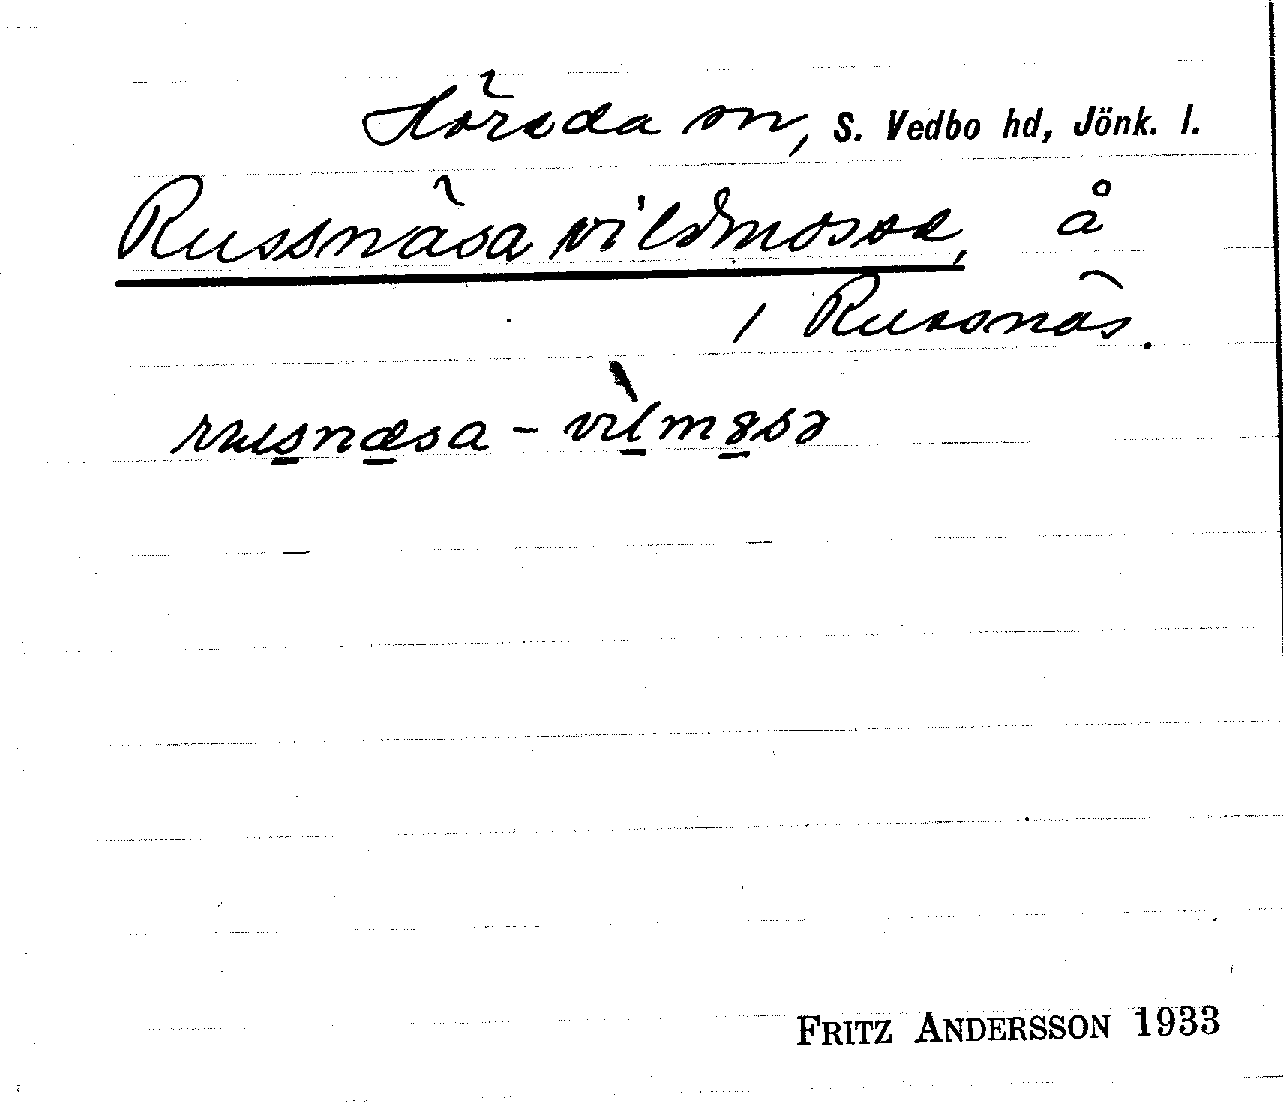 Höreda sn, S. Vedbo hd, Jönk. l.
Russnäsa vildmosse, å
/ Russnäs.
rusnæsa - vilmåsə
FRITZ ANDERSSON 1933